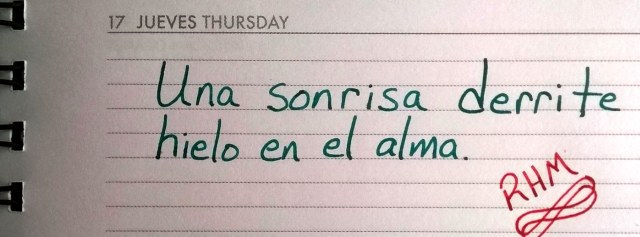 17 JUEVES THURSDAY
Una sonrisa derrite
hielo en el alma.
RHM